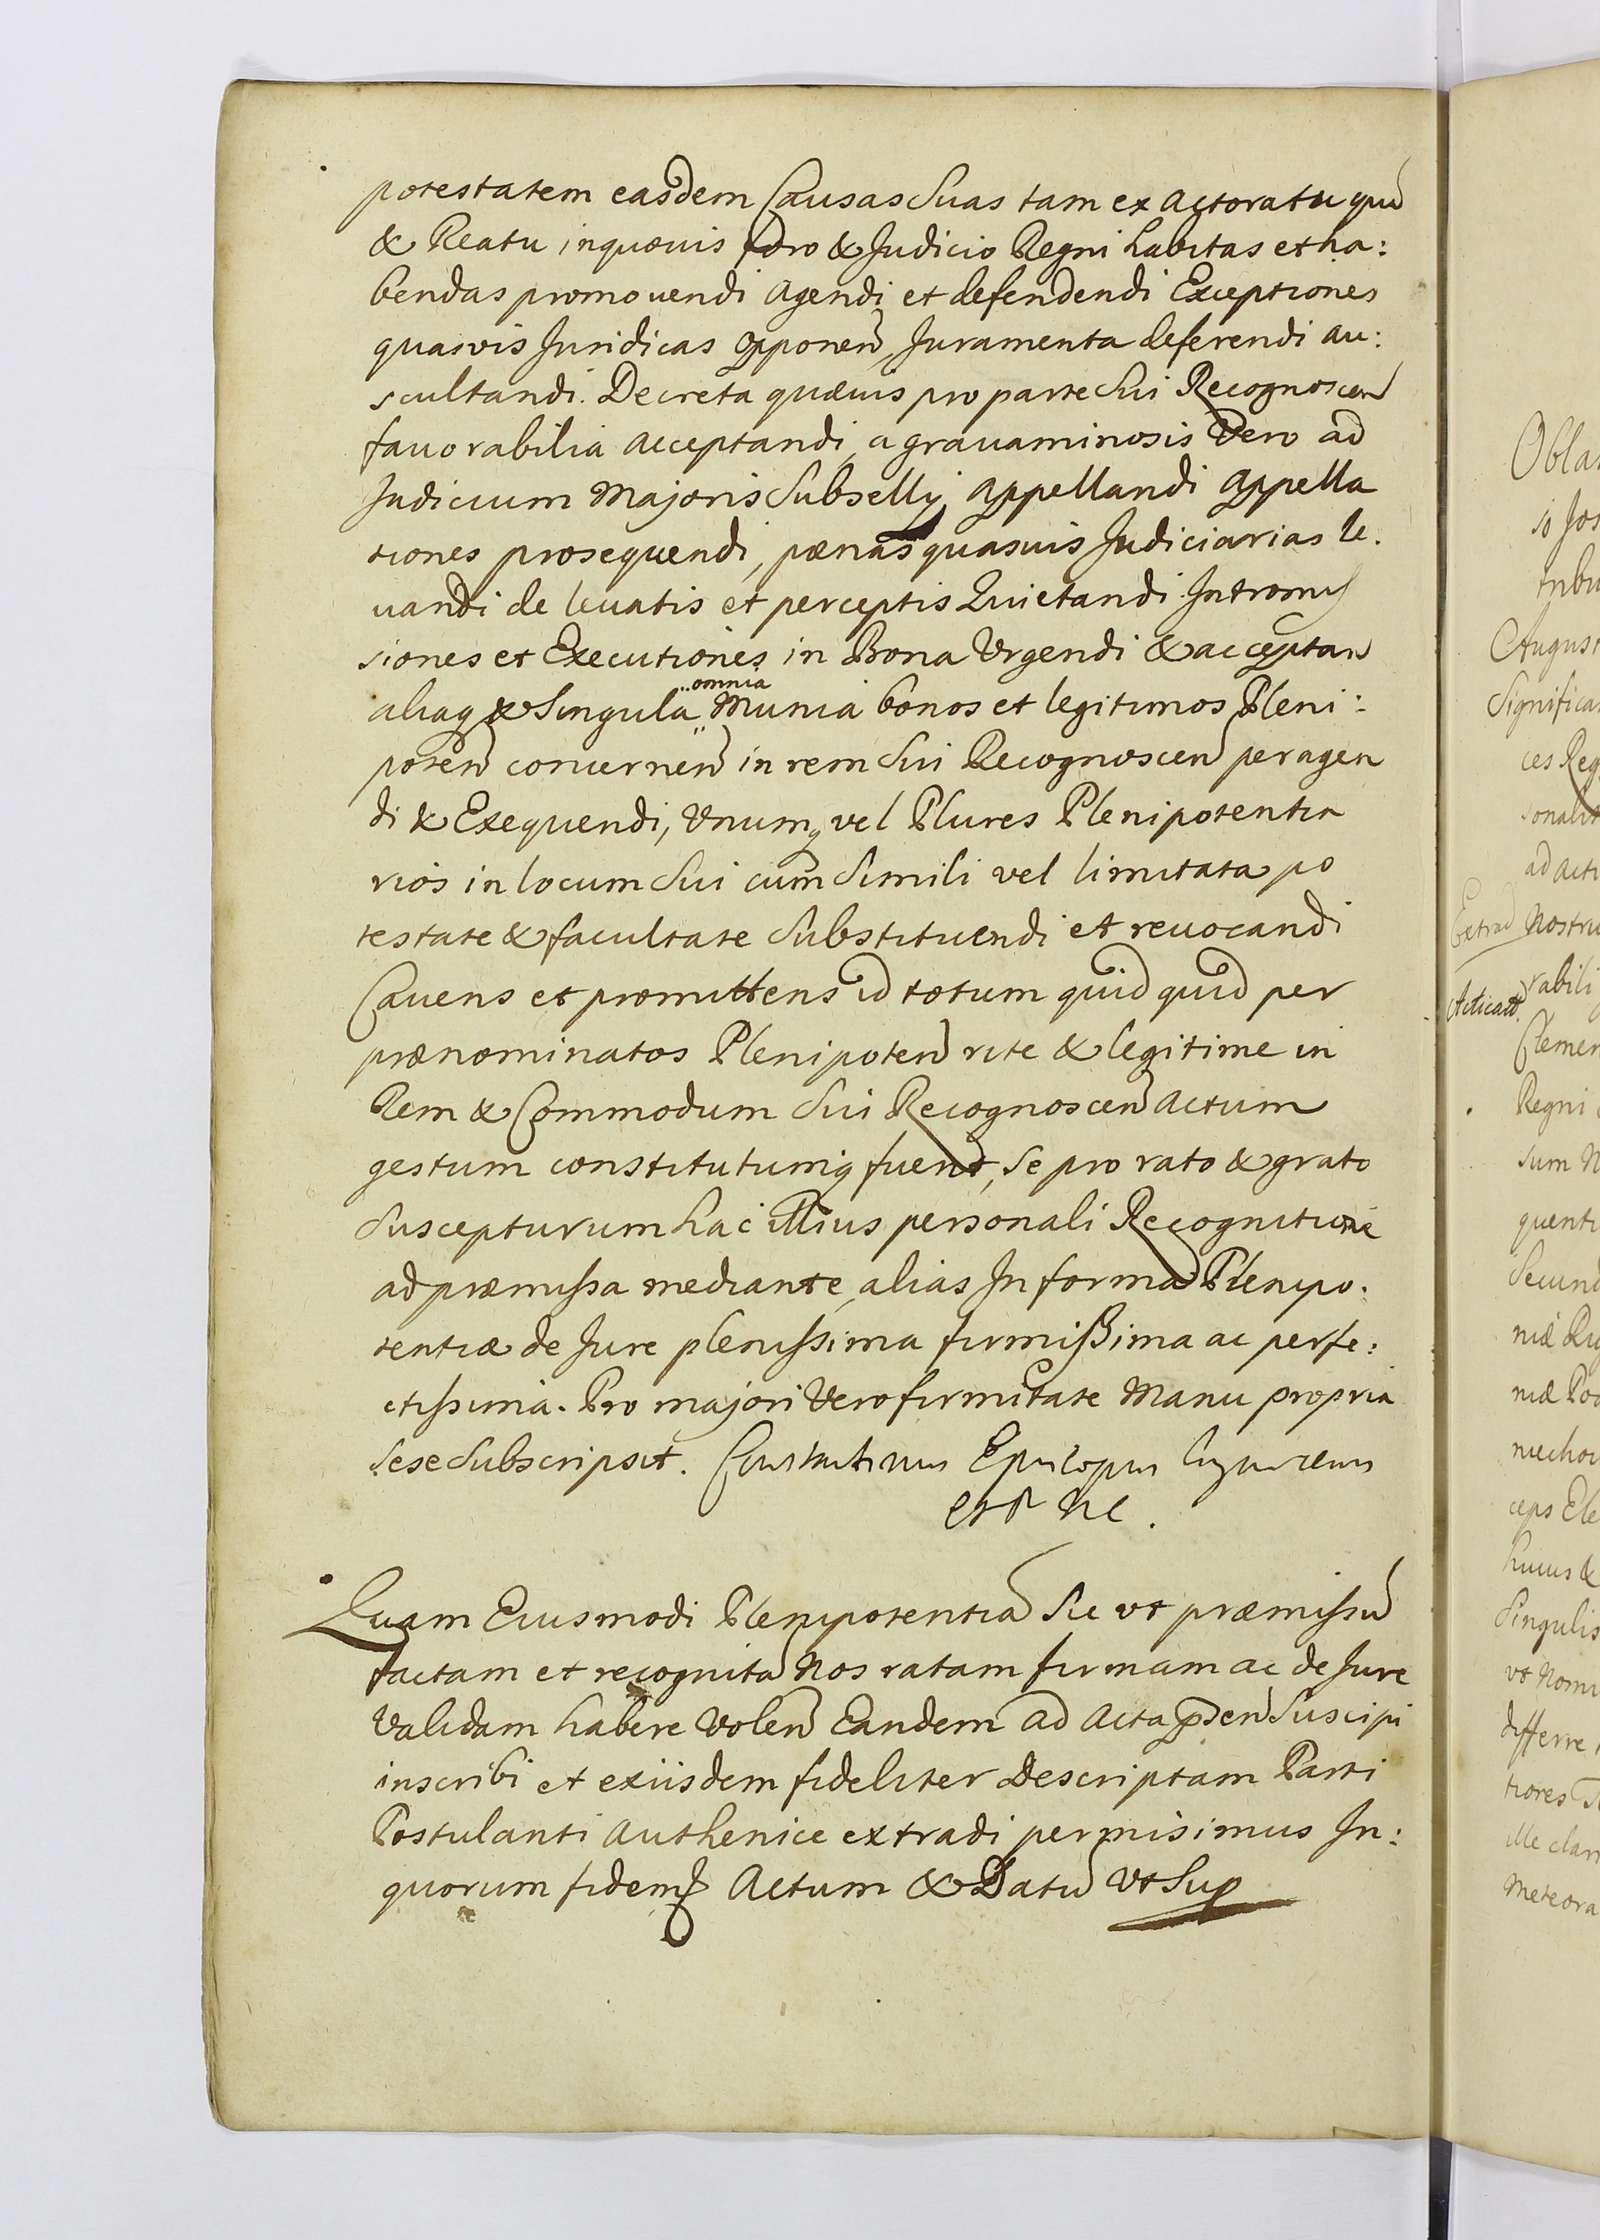 potestatem easdem Causas Suas tam ex Actoratu qua
& Reatu in quovis foro & Judicio Regni habitas et ha:
bendas promovendi agendi et defendendi Exceptiones
quasvis Juridicas opponen Juramenta deferendi au:
scultandi. Decreta quævis pro parte Sui Recognoscen
favorabilia acceptandi, a gravaminosis vero ad
Judicium Majoris Subsellij appellandi appella
tiones prosequendi, pœnas quasuis Judiciarias le.
uandi de leuatis et perceptis Quietandi Intromis
siones et Executiones in Bona Vrgendi & acceptan
aliaq & Singula omnia Munia bonos et legitimos Pleni:
poten concernen in rem Sui Recognoscen peragen
di & Exequendi, Vnumq vel Plures Plenipotentia
rios in locum Sui cum Simili vel limitata po
testate & facultate Substituendi et reuocandi
Cauens et promittens id totum quid quid per
prænominatos Plenipoten rite & legitime in
Rem & Commodum Sui Recognoscen actum
gestum constitutumq fuerit, Se pro rato & grato
Suscepturum hac illius personali Recognitione
ad præmissa mediante, alias In forma Plenipo:
tentiæ de Jure plenissima firmissima ac perfe:
ctissima. Pro majori Vero firmitate Manu propria
Sese Subscripsit. Episcopus

Quam Eiusmodi Plenipotentia Sic vt præmissu
factam et recognita Nos ratam firmam ac de Jure
Validam habere Volen Eandem ad Acta pñsen Suscipi
inscribi et exiisdem fideliter Descriptam Parti
Postulanti Authenice extradi permisimus In:
quorum fidem Actum & Datu Vt Sup
Obla
so Jos
tribu
August
Significa
ces Reg
sonalit
ad acti
Nostru
rabili
Clemen
Regni
Sum N
quenti
Secund
ceps Ele
huius &
Singulis
vt Nomi
differre
tiores
ille clar
Meteora